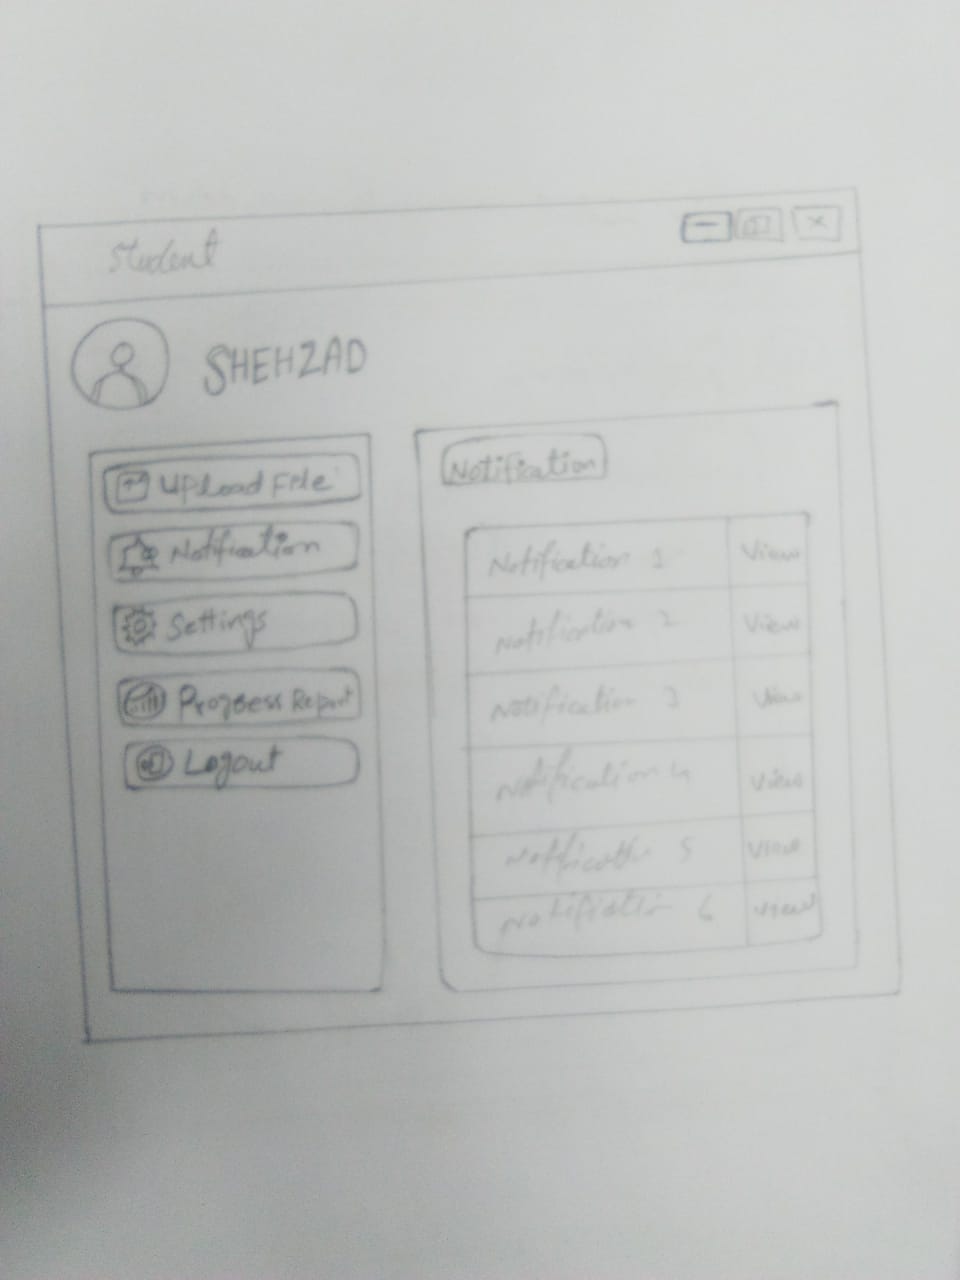 Student
SHEHZAD
Upload File
Notification
Settings
Progress Report
Logout
Notification
Notification 1 View
Notification 2 View
Notification 3 View
Notification 4 View
Notification 5 View
Notification 6 View